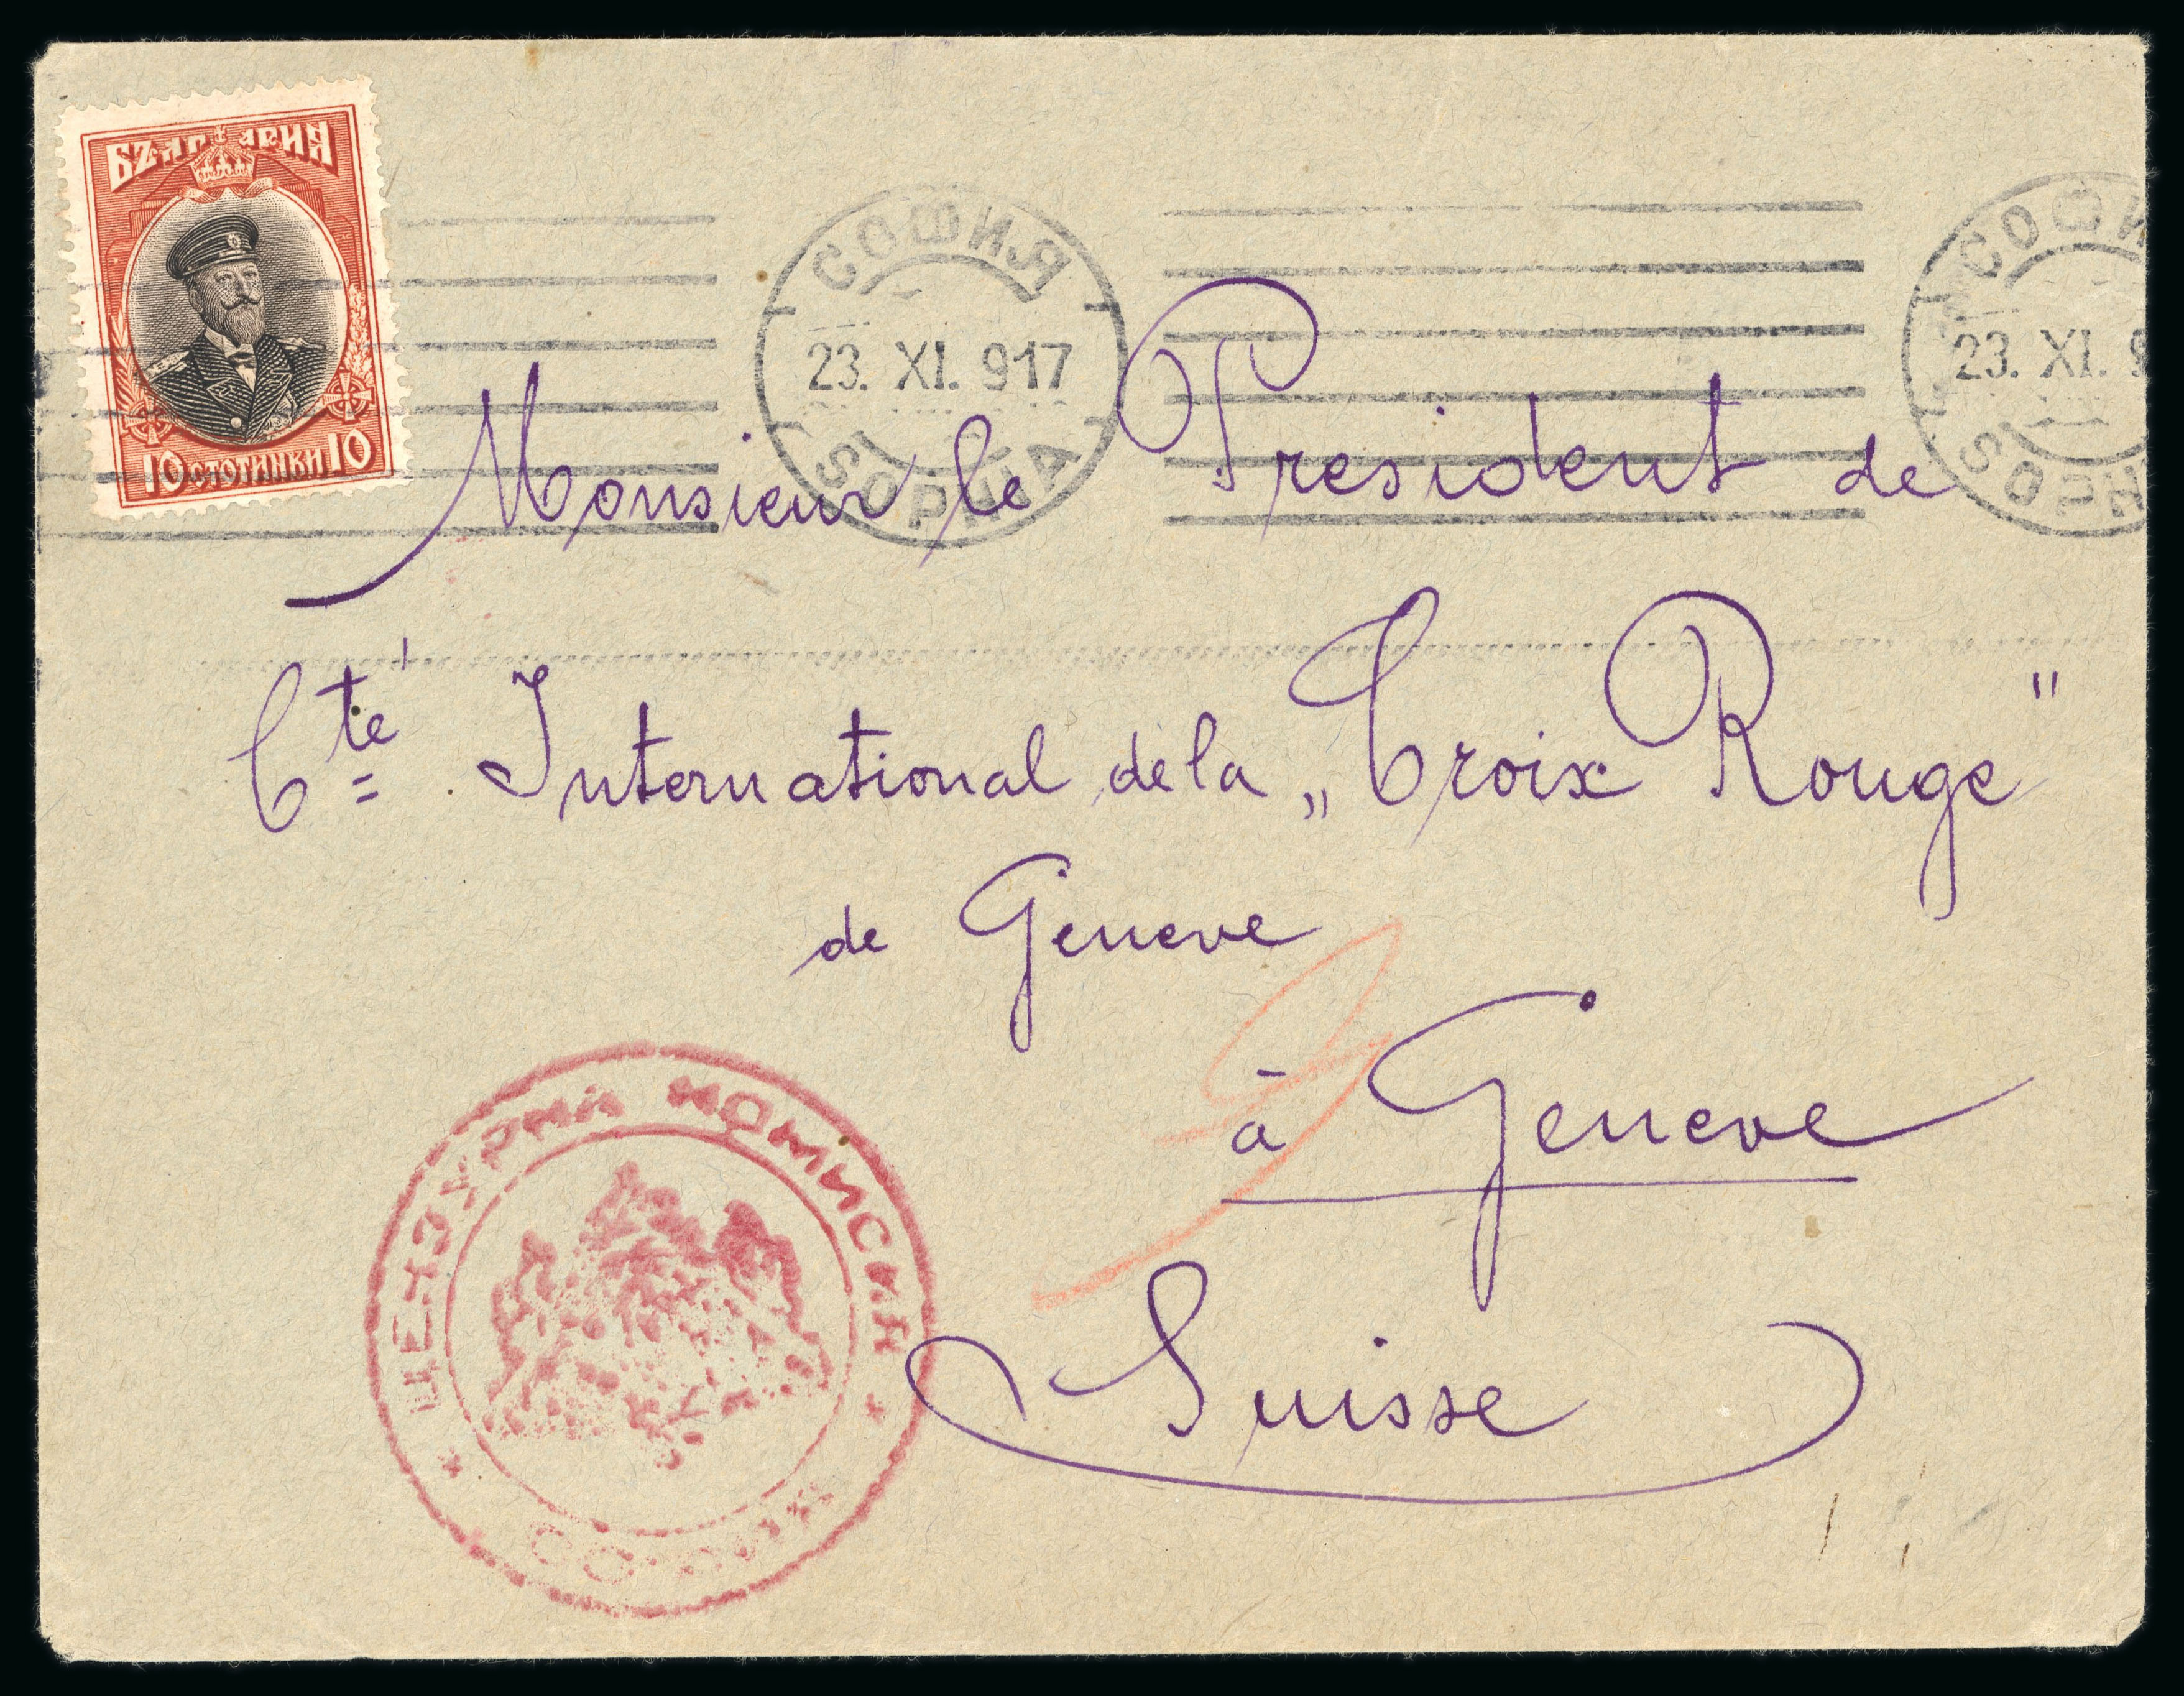 БЪЛГАРИЯ
10 СТОТИНКИ 10
СОФИЯ
23. XI. 917
SOPHIA
СОФИ
23. XI. 9
SOPH
Monsieur le President de
Cté International de la „Croix Rouge"
de Geneve
à Geneve
Suisse
ЦЕНЗУРНА КОМИСИЯ